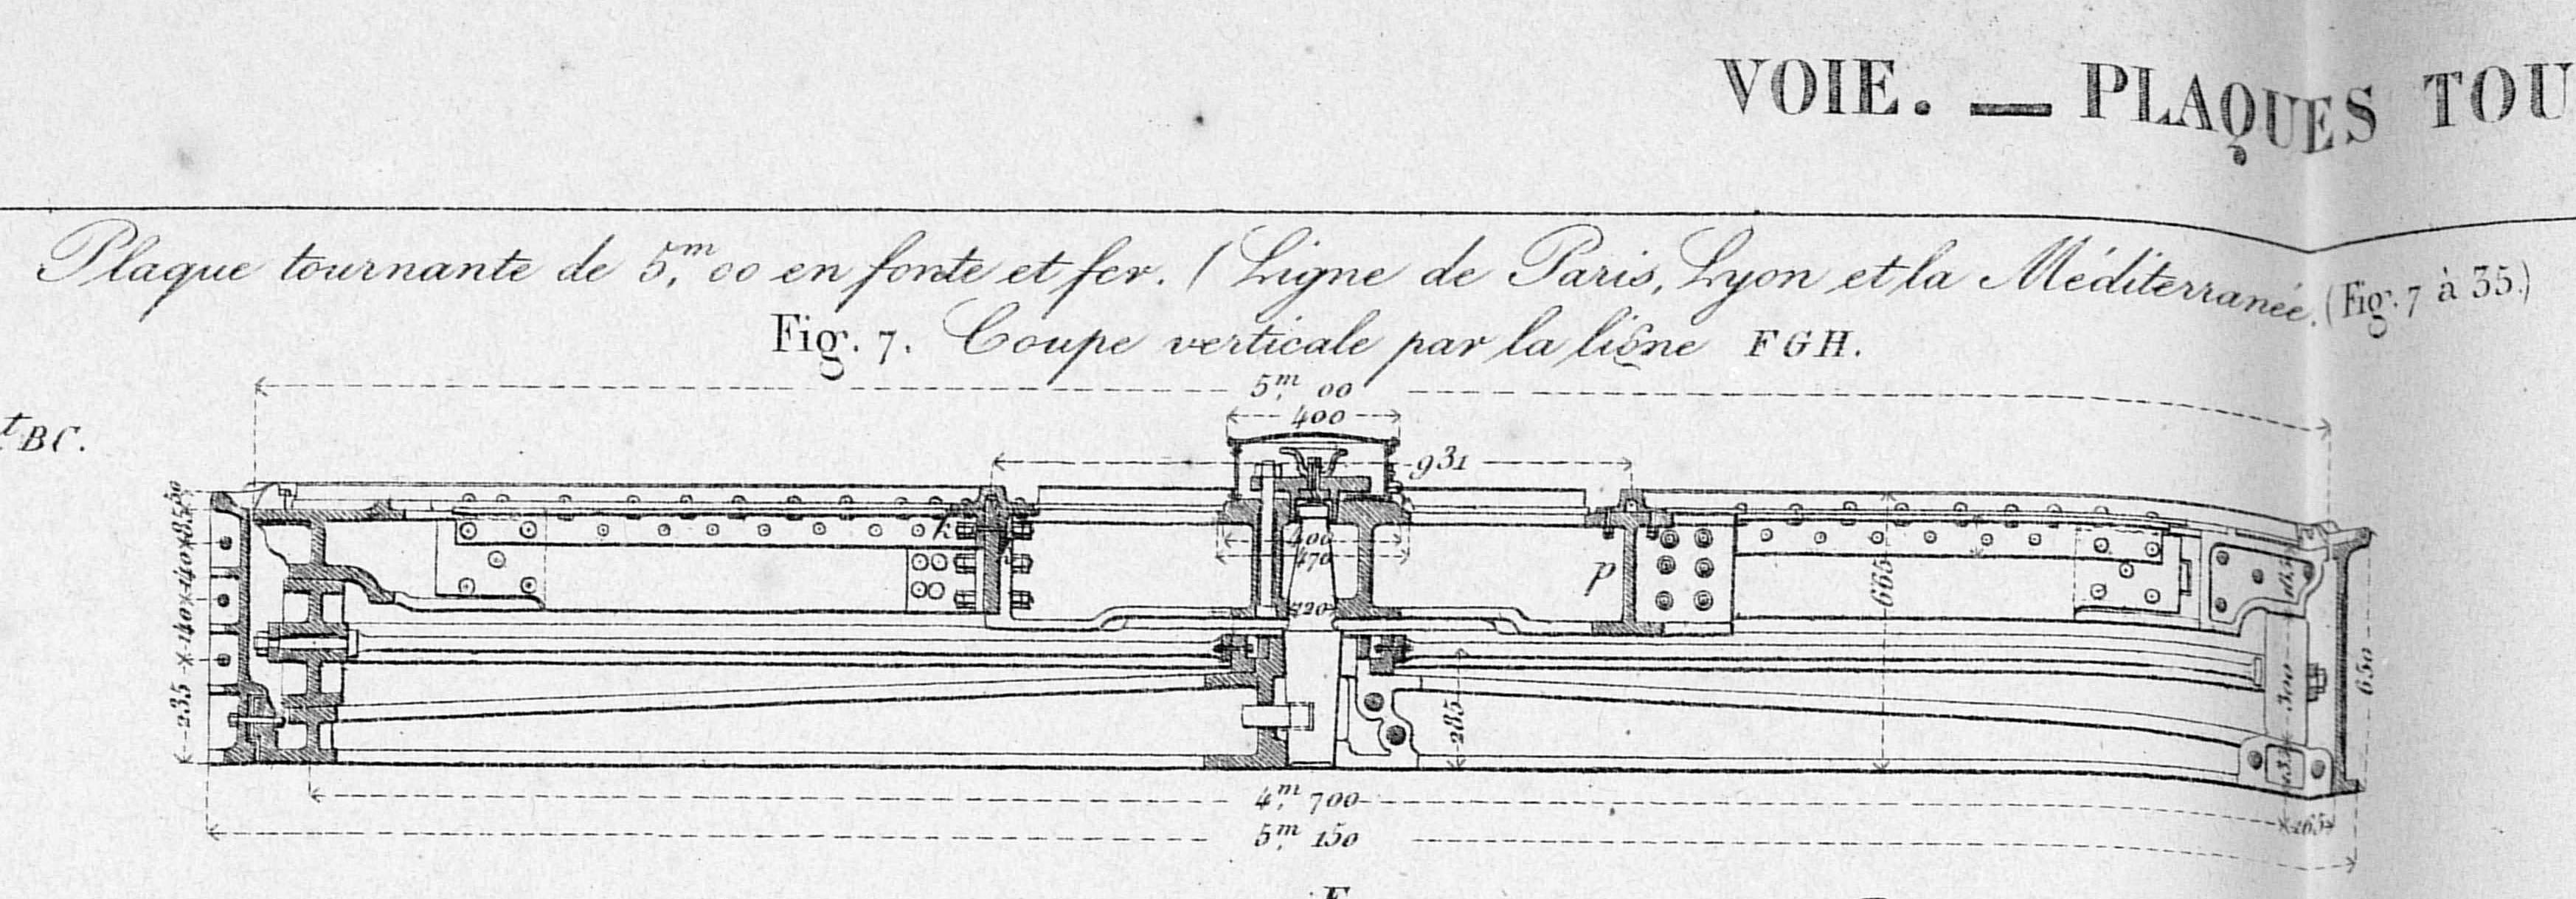 VOIE. — PLAQUES TOU
Plaque tournante de 5,m00 en fonte et fer. (Ligne de Paris, Lyon et la Méditerranée. (Fig. 7 à 35.)
Fig. 7. Coupe verticale par la ligne FGH.
t BC.
5,m 00
400
931
k
p
400
470
220
140
140
235
665
285
300
650
4,m 700
165
5,m 150
F